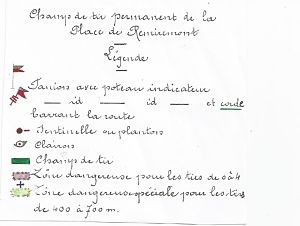 Champs de tir permanent de la
Place de Remiremont
Légende
Fanions avec poteau indicateur
id id et corde
barrant la route
Sentinelle ou plantons
Clairons
Champs de tir
Zône dangereuse pour les tirs de 0 à 4
Zône dangereuse spéciale pour les tirs
de 400 à 700 m.